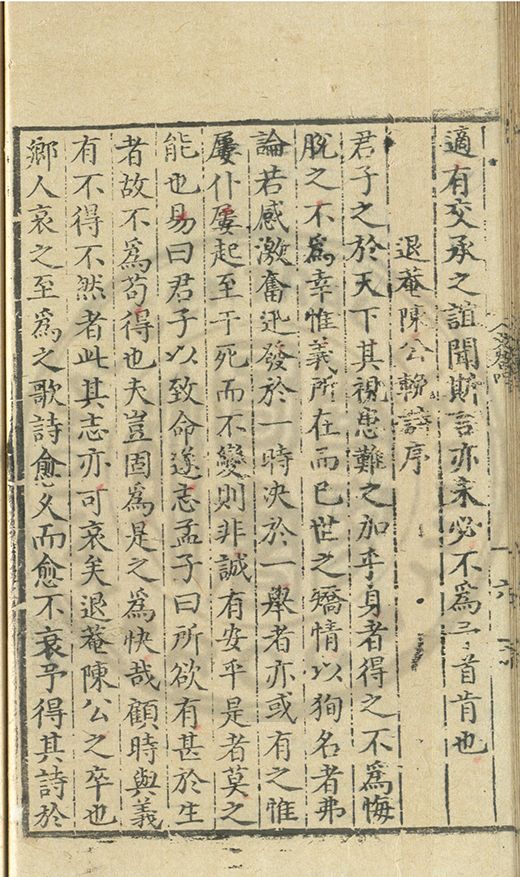 適有交承之誼聞斯言亦未必不為三首肯也
退菴陳公輓詩序
君子之於天下其視患難之加乎身者得之不為悔
脫之不為幸惟義所在而已世之矯情以狥名者弗
論若感激奮迅發於一時決於一舉者亦或有之惟
屢仆屢起至于死而不變則非誠有安乎是者莫之
能也易曰君子以致命遂志孟子曰所欲有甚於生
者故不為苟得也夫豈固為是之為快哉顧時與義
有不得不然者此其志亦可哀矣退菴陳公之卒也
鄉人哀之至為之歌詩愈久而愈不衰予得其詩於